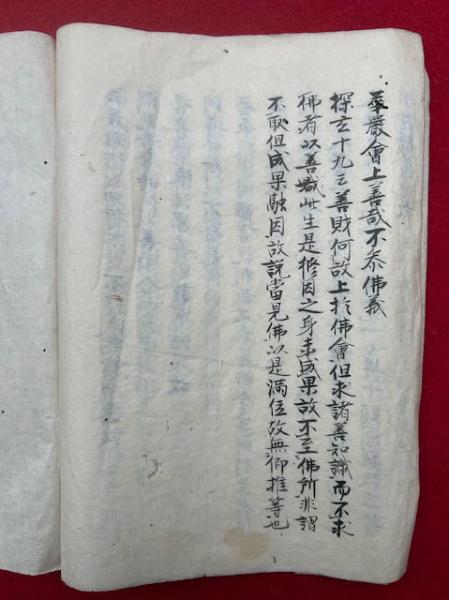 華嚴會上善哉不参佛義
探玄十九云善財何故上於佛會但求諸善知識而不求
佛者以善財此生是修因之身未感果故不至佛所非謂
不取但成果融因故説當見佛以是満位故無御推等也